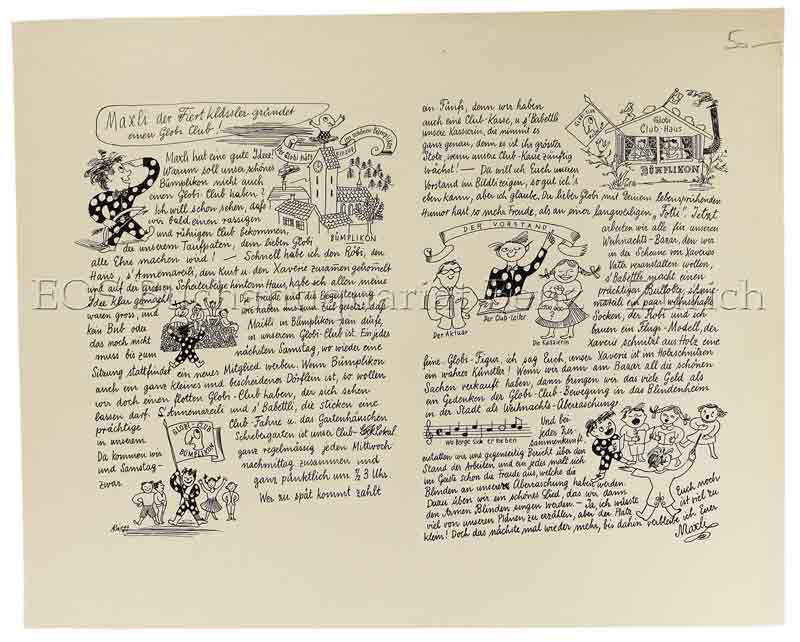 5.—
Maxli der Fiertklässler gründet
einen Globi Club!
Maxli hat eine gute Idee!
Warum soll unser schönes
Bümplikon nicht auch
einen Globi-Club haben?
Ich will schon sehen, daß
wir bald einen rassigen
und rühigen Club bekommen,
der unserem Taufpaten, dem lieben Globi
alle Ehre machen wird! — Schnell habe ich den Röbi, den
Hans, s'Annemareili, den Kurt u. den Xaveri zusamen getrommelt
und auf der grossen Scheiterbeige hinterm Haus, habe ich allen meine
Idee klar gemacht. Die Freude und die Begeisterung
waren gross, und wir haben uns zum Ziel gesetzt, daß
kein Bub oder Maitli in Bümplikon sein dürfe,
das noch nicht in unserem Globi-Club ist. Ein jedes
muss bis zum nächsten Samstag, wo wieder eine
Sitzung stattfindet ein neues Mitglied werben. Wenn Bümplikon
auch ein ganz kleines und bescheidenes Dörflein ist, so wollen
wir doch einen flotten Globi-Club haben, der sich sehen
lassen darf. S'Annemareili und s'Babettli, die sticken eine
prächtige Club-Fahne u. das Gartenhäuschen
in unserem Scheiebgarten ist unser Club-Lokal
Da kommen wir ganz regelmässig jeden Mittwoch
und Samstag- nachmittag zusammen und
zwar ganz pünktlich um ½ 3 Uhr.
Wer zu spät kommt zahlt
BÜMPLIKON
GLOBI CLUB
BÜMPLIKON
ein Fünfi, denn wir haben
auch eine Club-Kasse, u. s'Babettli
unsere Kassierin, die nimmt es
ganz genau, denn es ist ihr grösster
Stolz, wenn unsere Club-Kasse zünftig
wächst! — Da will ich Euch unseren
Vorstand im Bildli zeigen, so gut ich's
eben kann, aber ich glaube, Du lieber Globi mit Deinem lebensprühenden
Humor hast so mehr Freude, als an einer langweiligen „Foti". Jetzt
arbeiten wir alle für unseren
Weihnachts-Bazar, den wir
in der Scheune von Xaveries
Vater veranstalten wollen,
s'Babettli macht einen
Socken, der Röbi und ich
bauen ein Flugi-Modell, der
Xaveri schnitzt aus Holz eine
Globi
Club-Haus
BÜMPLIKON
DER VORSTAND
Der Aktuar
Der Club-Leiter
Die Kassierin
feine Globi-Figur, ich sag Euch, unser Xaveri ist im Holzschnitzen
ein wahrer Künstler! Wenn wir dann am Bazar all die schönen
Sachen verkauft haben, dann bringen wir das viele Geld als
ein Gedenken der Globi-Club-Bewegung in das Blindenheim
in der Stadt als Weihnachts-Überraschung!
Wo Berge sich erheben
Und bei
jeder Zu-
sammenkunft,
erstatten wir uns gegenseitig Bericht über den
Stand der Arbeiten, und ein jedes malt sich
im Geiste schon die Freude aus, welche die
Blinden an unserer Überraschung haben werden.
Dazu üben wir ein schönes Lied, das wir dann
den Armen Blinden singen werden — Ja, ich wüsste Euch noch
viel von unseren Plänen zu erzählen, aber der Platz ist viel zu
klein! Doch das nächste mal wieder mehr, bis dahin verbleibe ich Euer
Maxli